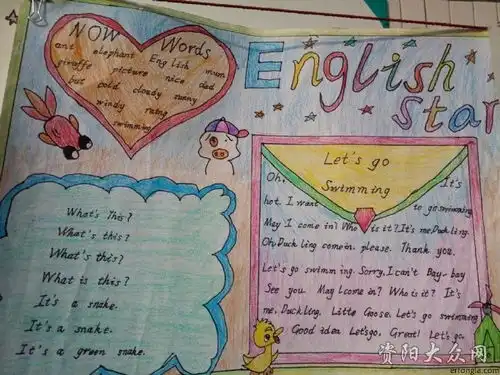 NOW Words
and elephant English mum
giraffe picture nice dad
but cold cloudy sunny
windy raing
swimming
English
Star
What's This?
What's this?
What's this?
What is this?
It's a snake.
It's a snake.
It's a green snake.
Let's go
Swimming
Oh, It's
hot. I want to go swimming
May I come in? Who is it? It's me, Duckling.
Oh, Duckling come in, please. Thank you.
Let's go swimming. Sorry, I can't Bay-bay
See you. May I come in? Who is it? It's
me, Duckling. Little Goose. Let's go swimming
Good idea Let's go. Great! Let's go.
资阳大众网
erfongla.com